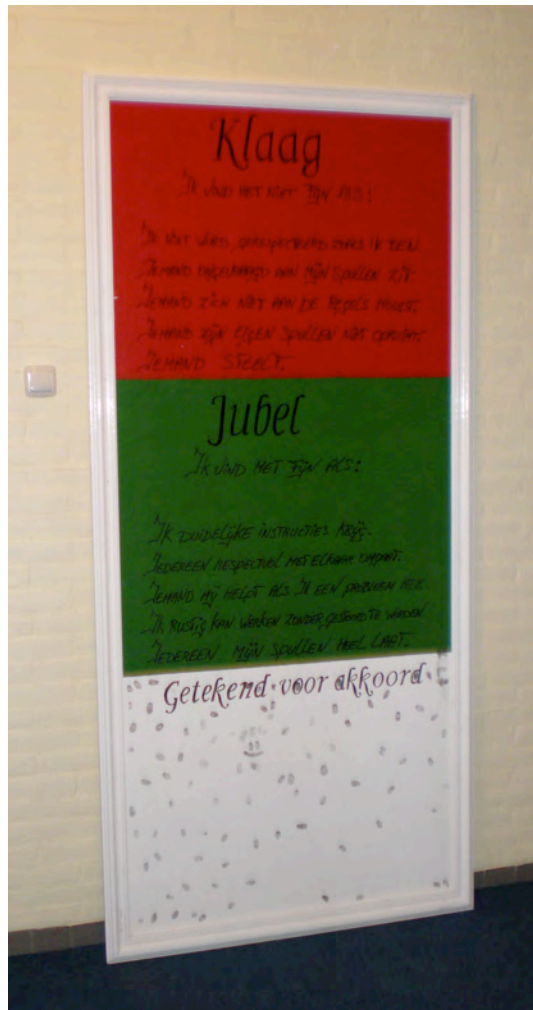 Klaag
Ik vind het niet fijn als:
Ik niet word gerespecteerd zoals ik ben.
Iemand ongevraagd aan mijn spullen zit.
Iemand zich niet aan de regels houdt.
Iemand zijn eigen spullen niet opruimt.
Iemand steelt.
Jubel
Ik vind het fijn als:
Ik duidelijke instructies krijg.
Iedereen respectvol met elkaar omgaat.
Iemand mij helpt als ik een probleem heb.
Ik rustig kan werken zonder gestoord te worden
Iedereen mijn spullen heel laat.
Getekend voor akkoord